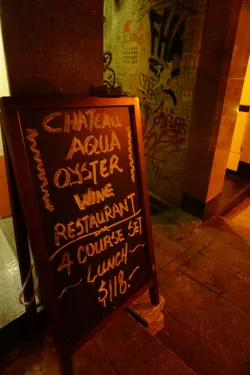 CHATEAU
AQUA
OYSTER
WINE
RESTAURANT
4 COURSE SET
~ LUNCH ~
$118.-